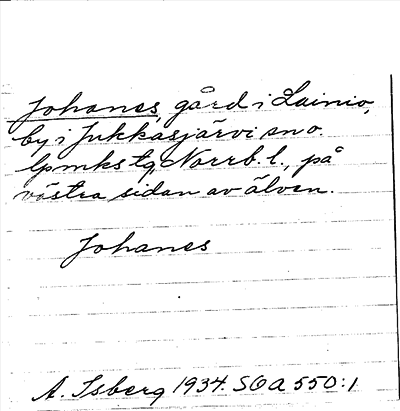 Johanes, gård i Lainio,
by i Jukkasjärvi sn o.
lpmks tg, Norrb. l., på
västra sidan av älven.
Johanes
A. Isberg 1934. SOA 550:1